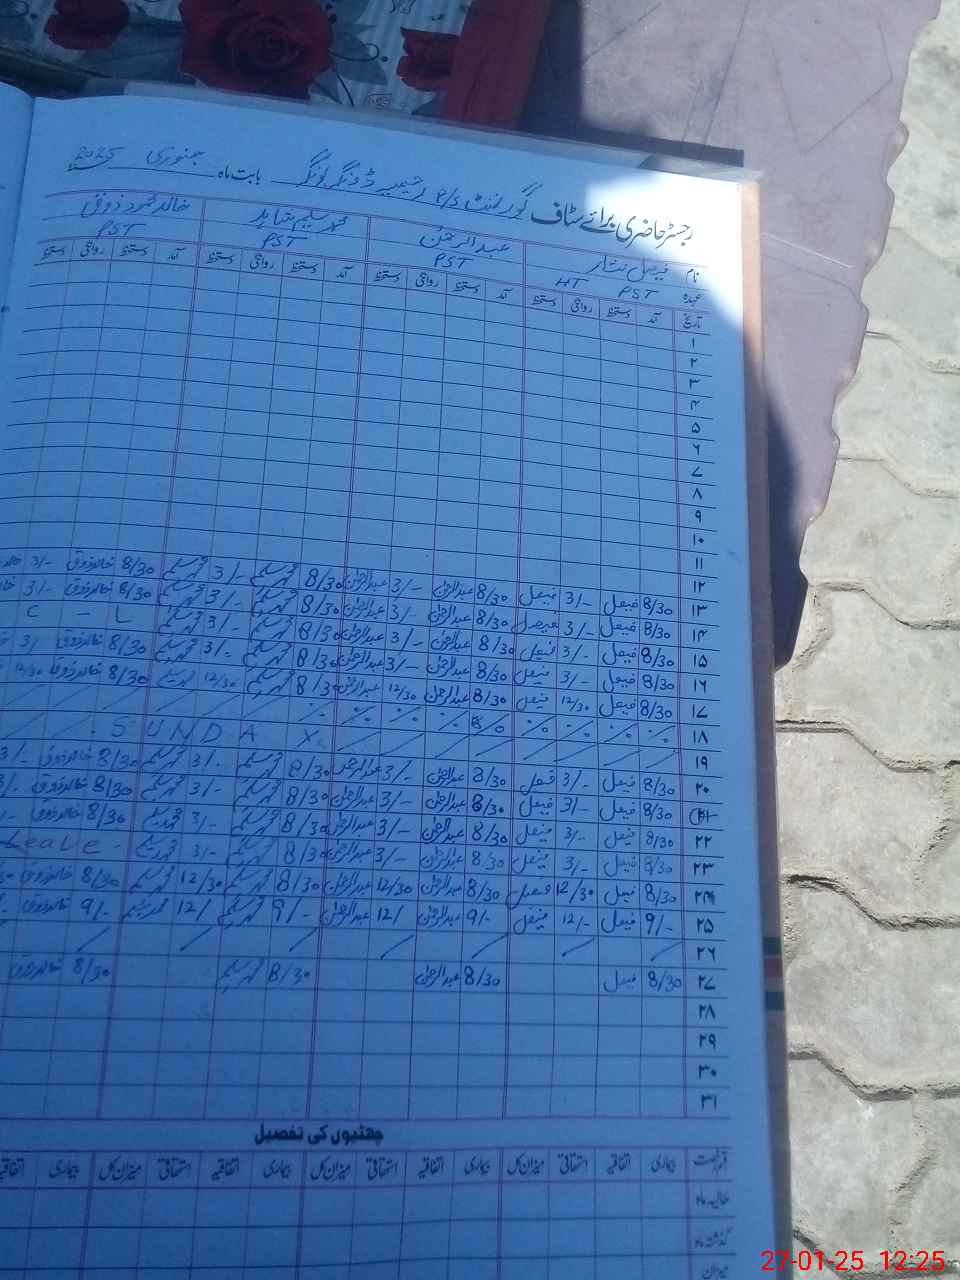 رجسٹر حاضری برائے سٹاف گورنمنٹ P/S بابت ماہ جنوری 2025
نام فیصل عبدالرحمٰن محمد سلیم شاہد خالد محمود ذوق
عہدہ PST HT PST PST PST
تاریخ آمد دستخط روانگی دستخط آمد دستخط روانگی دستخط آمد دستخط روانگی دستخط آمد دستخط روانگی دستخط
۱
۲
۳
۴
۵
۶
۷
۸
۹
۱۰
۱۱
۱۲
۱۳ 8/30 فیصل 3/- فیصل 8/30 عبدالرحمٰن 3/- عبدالرحمٰن 8/30 محمد سلیم 3/- محمد سلیم 8/30 خالد ذوق 3/- خالد
۱۴ 8/30 فیصل 3/- فیصل 8/30 عبدالرحمٰن 3/- عبدالرحمٰن 8/30 محمد سلیم 3/- محمد سلیم 8/30 خالد ذوق 3/- خالد
۱۵ 8/30 فیصل 3/- فیصل 8/30 عبدالرحمٰن 3/- عبدالرحمٰن 8/30 محمد سلیم 3/- محمد سلیم C - L
۱۶ 8/30 فیصل 3/- فیصل 8/30 عبدالرحمٰن 3/- عبدالرحمٰن 8/30 محمد سلیم 3/- محمد سلیم 8/30 خالد ذوق 3/
۱۷ 8/30 فیصل 12/30 فیصل 8/30 عبدالرحمٰن 12/30 عبدالرحمٰن 8/30 محمد سلیم 12/30 محمد سلیم 8/30 خالد ذوق 12/30
۱۸
۱۹ S U N D A Y
۲۰ 8/30 فیصل 3/- فیصل 8/30 عبدالرحمٰن 3/- عبدالرحمٰن 8/30 محمد سلیم 3/- محمد سلیم 8/30 خالد ذوق 3/-
۲۱ 8/30 فیصل 3/- فیصل 8/30 عبدالرحمٰن 3/- عبدالرحمٰن 8/30 محمد سلیم 3/- محمد سلیم 8/30 خالد ذوق
۲۲ 8/30 فیصل 3/- فیصل 8/30 عبدالرحمٰن 3/- عبدالرحمٰن 8/30 محمد سلیم 3/- محمد سلیم 8/30 خالد ذوق
۲۳ 8/30 فیصل 3/- فیصل 8/30 عبدالرحمٰن 3/- عبدالرحمٰن 8/30 محمد سلیم 3/- محمد سلیم Leave -
۲۴ 8/30 فیصل 12/30 فیصل 8/30 عبدالرحمٰن 12/30 عبدالرحمٰن 8/30 محمد سلیم 12/30 محمد سلیم 8/30 خالد ذوق
۲۵ 9/- فیصل 12/- فیصل 9/- عبدالرحمٰن 12/ عبدالرحمٰن 9/- محمد سلیم 12/ محمد سلیم 9/- خالد ذوق
۲۶
۲۷ 8/30 فیصل 8/30 عبدالرحمٰن 8/30 محمد سلیم 8/30 خالد ذوق
۲۸
۲۹
۳۰
۳۱
چھٹیوں کی تفصیل
قسم رخصت بیماری اتفاقیہ استحقاقی میزان کل بیماری اتفاقیہ استحقاقی میزان کل بیماری اتفاقیہ استحقاقی میزان کل بیماری اتفاقیہ
حالیہ ماہ
گذشتہ ماہ
میزان
27-01-25 12:25